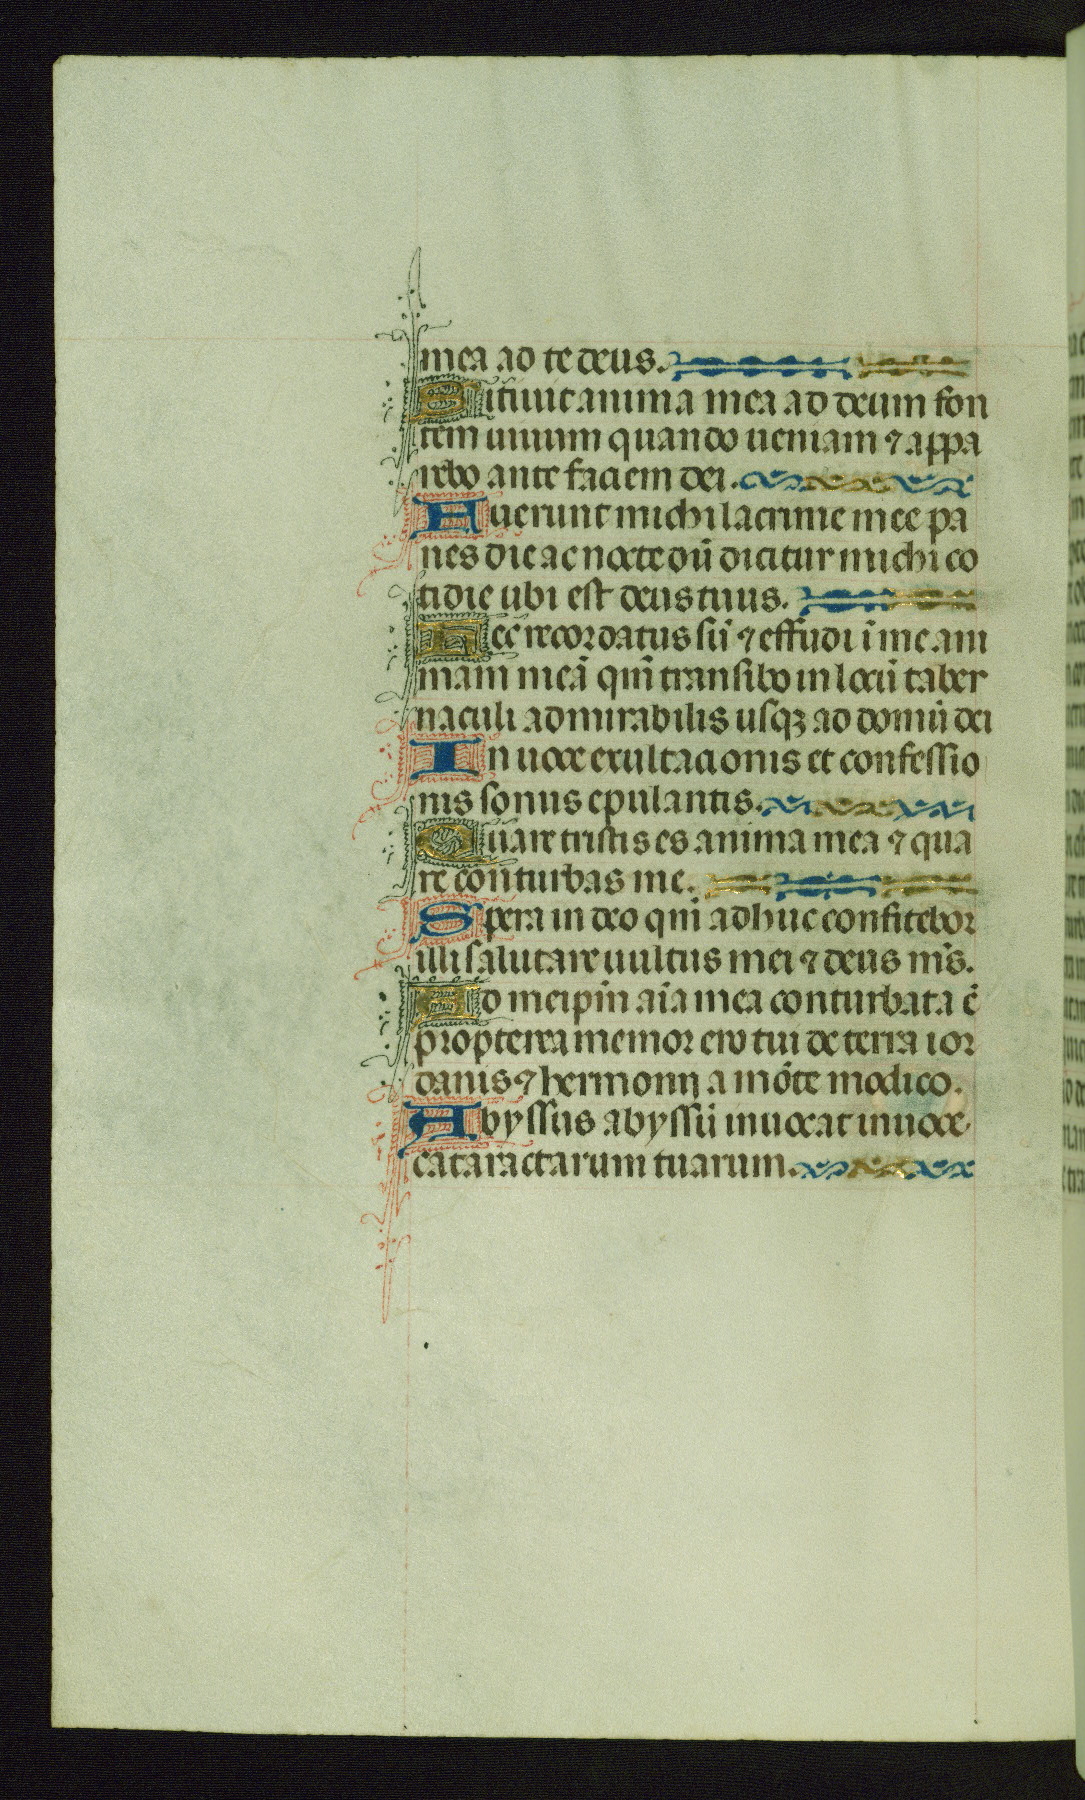 mea ad te deus.
Sitiuit anima mea ad deum fon
tem uiuum quando ueniam ⁊ appa
rebo ante faciem dei.
Fuerunt michi lacrime mee pa
nes die ac nocte dū dicitur michi co
tidie ubi est deus tuus.
Hec recordatus sū ⁊ effudi ī me ani
mam meā qm̄ transibo in locū taber
naculi admirabilis usqꝫ ad domū dei
In uoce exultacionis et confessio
nis sonus epulantis.
Quare tristis es anima mea ⁊ qua
re conturbas me.
Spera in deo qm̄ adhuc confitebor
illi salutare uultus mei ⁊ deus m̄s.
Ad meipm̄ aīa mea conturbata ē
propterea memor ero tui de terra ior
danis ⁊ hermonij a mōte modico.
Abyssus abyssū inuocat in uoce
cataractarum tuarum.